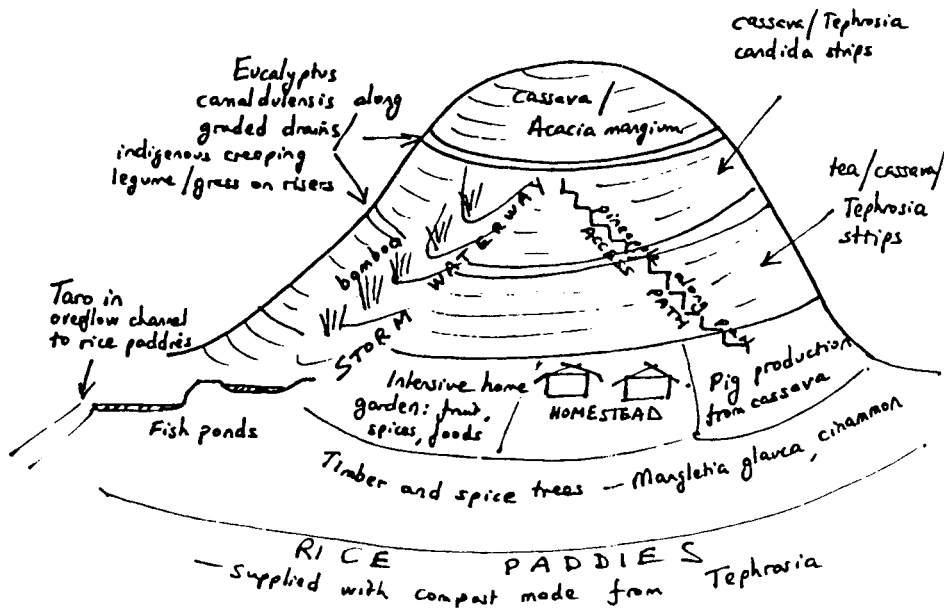 cassava/Tephrosia
candida strips
Eucalyptus
camaldulensis along
graded drains
indigenous creeping
legume/grass on risers
cassava/
Acacia mangium
tea/cassava/
Tephrosia
strips
bamboo
STORM WATERWAY
pineapple along path
ACCESS PATH
Taro in
overflow channel
to rice paddies
Fish ponds
Intensive home
garden: fruit,
spices, foods
HOMESTEAD
Pig production
from cassava
Timber and spice trees — Mangletia glauca, cinammon
RICE PADDIES
— supplied with compost made from Tephrosia